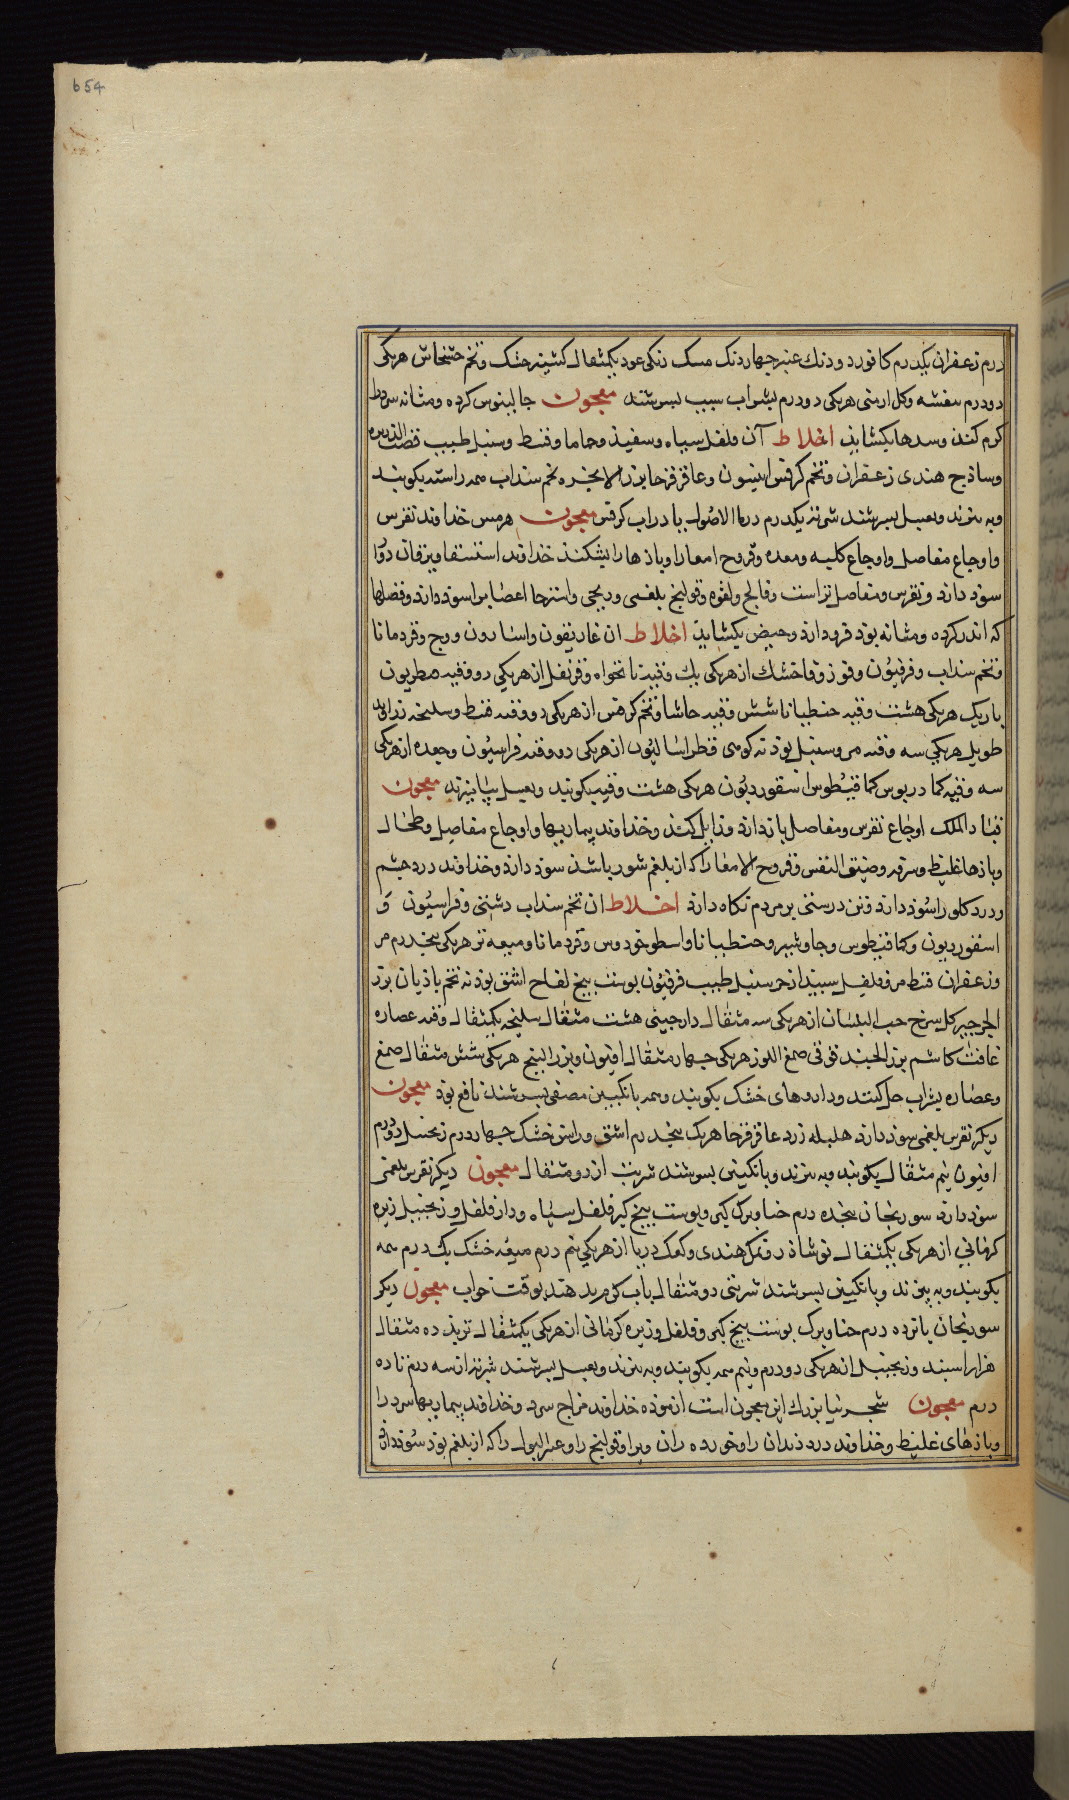 654
درم زعفران یکدرم کافور دو دنك عنبر چهار دنک مسک دنکی عود یکمثقال کشنیز خشک و تخم خشخاش هریکی
دو درم بنفشه و کل ارمنی هریکی دو درم بشراب سیب بسرشند معجون جالینوس کرده و مثانه سرد را
کرم کند و سدها بکشاید اخلاط آن فلفل سیاه و سفید و حاما و قسط و سنبل طیب قصب الذریره
و ساذج هندی زعفران و تخم کرفس انیسون و عاقرقرحا بزر الانجره تخم سنداب همه راستد بکوبند
و به بیزند و بعسل بسرشند شربتی یکدرم در ماء الاصول یا در اب کرفس معجون هرمس خداوند نقرس
و اوجاع مفاصل و اوجاع کلیه و معده و قروح امعا را و باذها را بشکند خداوند استسقا و یرقان دوا
سوذ دارد و نقرس و مفاصل را است و فالج و لقوه و قولنج بلغمی و ریحی و استرخا اعصاب را سوذ دارد و فضلها
که اندر کرده و مثانه بوذ فرود ارد و حیض بکشاید اخلاط ان غاریقون و اسارون و وج و قردمانا
و تخم سنداب و فرفیون و فوذ و قاخشك از هریکی یك وقیه نانخواه و قرنفل از هریکی دو وقیه قنطریون
باریک هریکی هشت وقیه جنطیانا شش وقیه حاشا و تخم کرفس از هریکی دو وقیه قسط و سلیخه زراوند
طویل هریکی سه وقیه مر و سنبل بوذنه کوهی فطراسالیون از هریکی دو وقیه فراسیون و جعده از هریکی
سه وقیه کمادریوس کمافیطوس اسقوردیون هریکی هشت وقیه بکوبند و بعسل بیامیزند معجون
قباد الملک اوجاع نقرس و مفاصل باز دارد و زایل کند و خداوند بیماریها و اوجاع مفاصل و طحال
و باذها غلیظ و سرفه و ضیق النفس و قروح الامعا را که از بلغم شور باشد سوذ دارد و خداوند درد چشم
و درد کلو را سوذ دارد و تن درستی بر مردم نکاه دارد اخلاط ان تخم سنداب دشتی و فراسیون و
اسقوردیون و کمافیطوس و جاوشیر و جنطیانا و اسطوخودوس و قردمانا و میعه تر هریکی پنجدرم مر
و زعفران قسط مر و فلفل سپید از خر سنبل طیب فرفیون پوست بیخ لفاح اشق بوذنه تخم باذیان بزر
الجرجیر کل سرخ حب البلسان از هریکی سه مثقال دارچینی هشت مثقال سلیخه یکمثقال وقیه عصاره
غافث کاشم بزر الحندقوقی صمغ اللوز هریکی چهار مثقال افیون و بزر البنج هریکی شش مثقال صمغ
و عصاره بشراب حل کنند و داروهای خشک بکوبند و همه بانکبین مصفی بسرشند نافع بوذ معجون
دیکر نقرس بلغمی سوذ دارد هلیله زرد عاقرقرحا هریک پنجدرم اشق و راسن خشک چهار درم زنجبیل دو درم
افیون نیم مثقال بکوبند و به بیزند و بانکبین بسرشند شربت از دو مثقال معجون دیکر نقرس بلغمی
سوذ دارد سورنجان پنجده درم حنا و برک کبر و پوست بیخ کبر فلفل سیاه و دار فلفل و زنجبیل زیره
کرمانی از هریکی یکمثقال نوشاذر و نمک هندی و کفک دریا از هریکی نیم درم میعه خشک یك درم همه
بکوبند و به بیزند و بانکبین بسرشند شربتی دو مثقال باب کرم بدهند بوقت خواب معجون دیکر
سورنجان پانزده درم حنا و برک پوست بیخ کبر و فلفل و زیره کرمانی از هریکی یکمثقال تربذ ده مثقال
هزار اسپند و زنجبیل از هریکی دو درم و نیم همه بکوبند و به بیزند و بعسل بسرشند شربتی از سه درم تا ده
درم معجون شجرنیا بزرك این معجون است ازموذه خداوند مزاج سرد و خداوند بیماریها سرد را
و باذهای غلیظ و خداوند درد دندان را و خورده ران ویرا و قولنج را و عسر البول را که از بلغم بوذ سوذ دارد